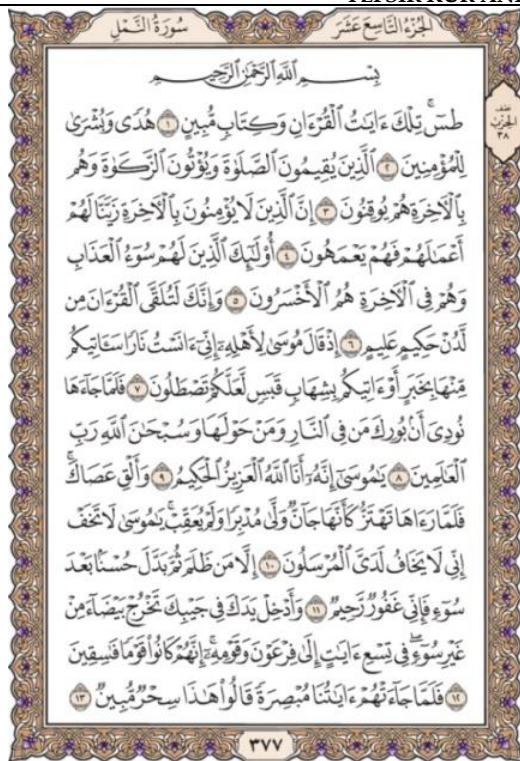 TEFSIR KUR'ANI
الجُزْءُ التَّاسِعَ عَشَرَ
سُورَةُ النَّمْلِ
بِسْمِ اللَّهِ الرَّحْمَٰنِ الرَّحِيمِ
نصف الحزب ٣٨
طسٓۚ تِلۡكَ ءَايَٰتُ ٱلۡقُرۡءَانِ وَكِتَابٖ مُّبِينٍ ١ هُدٗى وَبُشۡرَىٰ
لِلۡمُؤۡمِنِينَ ٢ ٱلَّذِينَ يُقِيمُونَ ٱلصَّلَوٰةَ وَيُؤۡتُونَ ٱلزَّكَوٰةَ وَهُم
بِٱلۡأٓخِرَةِ هُمۡ يُوقِنُونَ ٣ إِنَّ ٱلَّذِينَ لَا يُؤۡمِنُونَ بِٱلۡأٓخِرَةِ زَيَّنَّا لَهُمۡ
أَعۡمَٰلَهُمۡ فَهُمۡ يَعۡمَهُونَ ٤ أُوْلَٰٓئِكَ ٱلَّذِينَ لَهُمۡ سُوٓءُ ٱلۡعَذَابِ
وَهُمۡ فِي ٱلۡأٓخِرَةِ هُمُ ٱلۡأَخۡسَرُونَ ٥ وَإِنَّكَ لَتُلَقَّى ٱلۡقُرۡءَانَ مِن
لَّدُنۡ حَكِيمٍ عَلِيمٍ ٦ إِذۡ قَالَ مُوسَىٰ لِأَهۡلِهِۦٓ إِنِّيٓ ءَانَسۡتُ نَارٗا سَـَٔاتِيكُم
مِّنۡهَا بِخَبَرٍ أَوۡ ءَاتِيكُم بِشِهَابٖ قَبَسٖ لَّعَلَّكُمۡ تَصۡطَلُونَ ٧ فَلَمَّا جَآءَهَا
نُودِيَ أَنۢ بُورِكَ مَن فِي ٱلنَّارِ وَمَنۡ حَوۡلَهَا وَسُبۡحَٰنَ ٱللَّهِ رَبِّ
ٱلۡعَٰلَمِينَ ٨ يَٰمُوسَىٰٓ إِنَّهُۥٓ أَنَا ٱللَّهُ ٱلۡعَزِيزُ ٱلۡحَكِيمُ ٩ وَأَلۡقِ عَصَاكَۚ
فَلَمَّا رَءَاهَا تَهۡتَزُّ كَأَنَّهَا جَآنّٞ وَلَّىٰ مُدۡبِرٗا وَلَمۡ يُعَقِّبۡۚ يَٰمُوسَىٰ لَا تَخَفۡ
إِنِّي لَا يَخَافُ لَدَيَّ ٱلۡمُرۡسَلُونَ ١٠ إِلَّا مَن ظَلَمَ ثُمَّ بَدَّلَ حُسۡنَۢا بَعۡدَ
سُوٓءٖ فَإِنِّي غَفُورٞ رَّحِيمٞ ١١ وَأَدۡخِلۡ يَدَكَ فِي جَيۡبِكَ تَخۡرُجۡ بَيۡضَآءَ مِنۡ
غَيۡرِ سُوٓءٖۖ فِي تِسۡعِ ءَايَٰتٍ إِلَىٰ فِرۡعَوۡنَ وَقَوۡمِهِۦٓۚ إِنَّهُمۡ كَانُواْ قَوۡمٗا فَٰسِقِينَ
١٢ فَلَمَّا جَآءَتۡهُمۡ ءَايَٰتُنَا مُبۡصِرَةٗ قَالُواْ هَٰذَا سِحۡرٞ مُّبِينٞ ١٣
٣٧٧